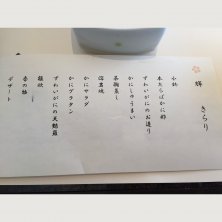 輝 きらり
小鉢
本たらばかに酢
ずわいがにのお造り
かにしゅうまい
茶碗蒸し
かにサラダ
かにグラタン
ずわいがにの天麩羅
雑炊
香の物
デザート